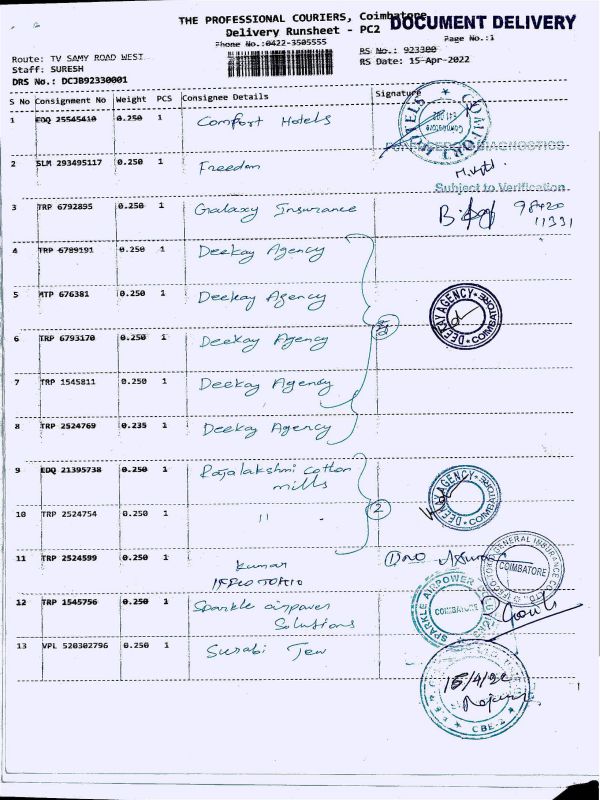 THE PROFESSIONAL COURIERS, Coimbatore
DOCUMENT DELIVERY
Delivery Runsheet - PC2
Phone No.:0422-3505555
Page No.:1
Route: TV SAMY ROAD WEST
RS No.: 923300
Staff: SURESH
RS Date: 15-Apr-2022
DRS No.: DCJB92330001
S No Consignment No Weight PCS Consignee Details Signature
1 EDQ 25545410 0.250 1 Comfort Hotels
COMFORT HOTELS Coimbatore
DIAGNOSTICS
2 SLM 293495117 0.250 1 Freedom
Subject to Verification
3 TRP 6792895 0.250 1 Galaxy Insurance 98420
11331
4 TRP 6789191 0.250 1 Deekay Agency
5 MTP 676381 0.250 1 Deekay Agency
DEEKAY AGENCY COIMBATORE
6 TRP 6793170 0.250 1 Deekay Agency
7 TRP 1545811 0.250 1 Deekay Agency
8 TRP 2524769 0.235 1 Deekay Agency
9 EDQ 21395738 0.250 1 Rajalakshmi Cotton
mills
DEEKAY AGENCY COIMBATORE
10 TRP 2524754 0.250 1 "
2
11 TRP 2524599 0.250 1 Kumar
GENERAL INSURANCE CO. LTD. COIMBATORE
12 TRP 1545756 0.250 1 Sparkle airpower
Solutions
SPARKLE AIRPOWER COIMBATORE
13 VPL 520302796 0.250 1 Surabi Tex
15/4/22
CBE-2